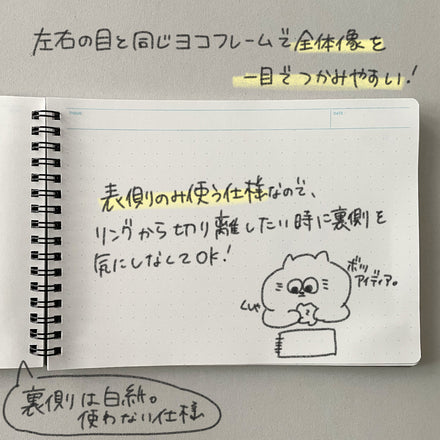 左右の目と同じヨコフレームで全体像を
一目でつかみやすい!
DATE
表側のみ使う仕様なので、
リングから切り離したい時に裏側を
気にしなしてOK!
ボツ
アイディア。
くしゃ
裏側は白紙。
使わない仕様